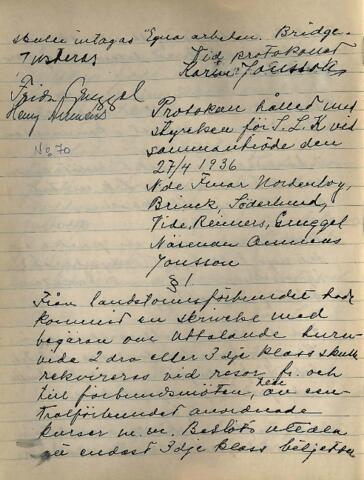 skulle intagas "Egna arbeten. Bridge.
Justeras Vid protokollet
Karin Jonsson
Frida Gauggel
Henry
No 70
Protokoll hållet med
styrelsen för S.L.K vid
sammanträde den
27/4 1936
N.de Einar Nordenlöv,
Brinck, Söderlund,
Vide, Reiners, Gauggel
Näsman
Jonsson
§ 1
Från landstormsförbundet hade
kommit en skrivelse med
begäran om uttalande huru-
vida 2 dra eller 3 dje klass skulle
rekvireras vid resor fr. och
till förbundsmöten, av cen-
tralförbundet anordnade
kurser m.m. Beslöts uttala
endast 3 dje klass biljetter